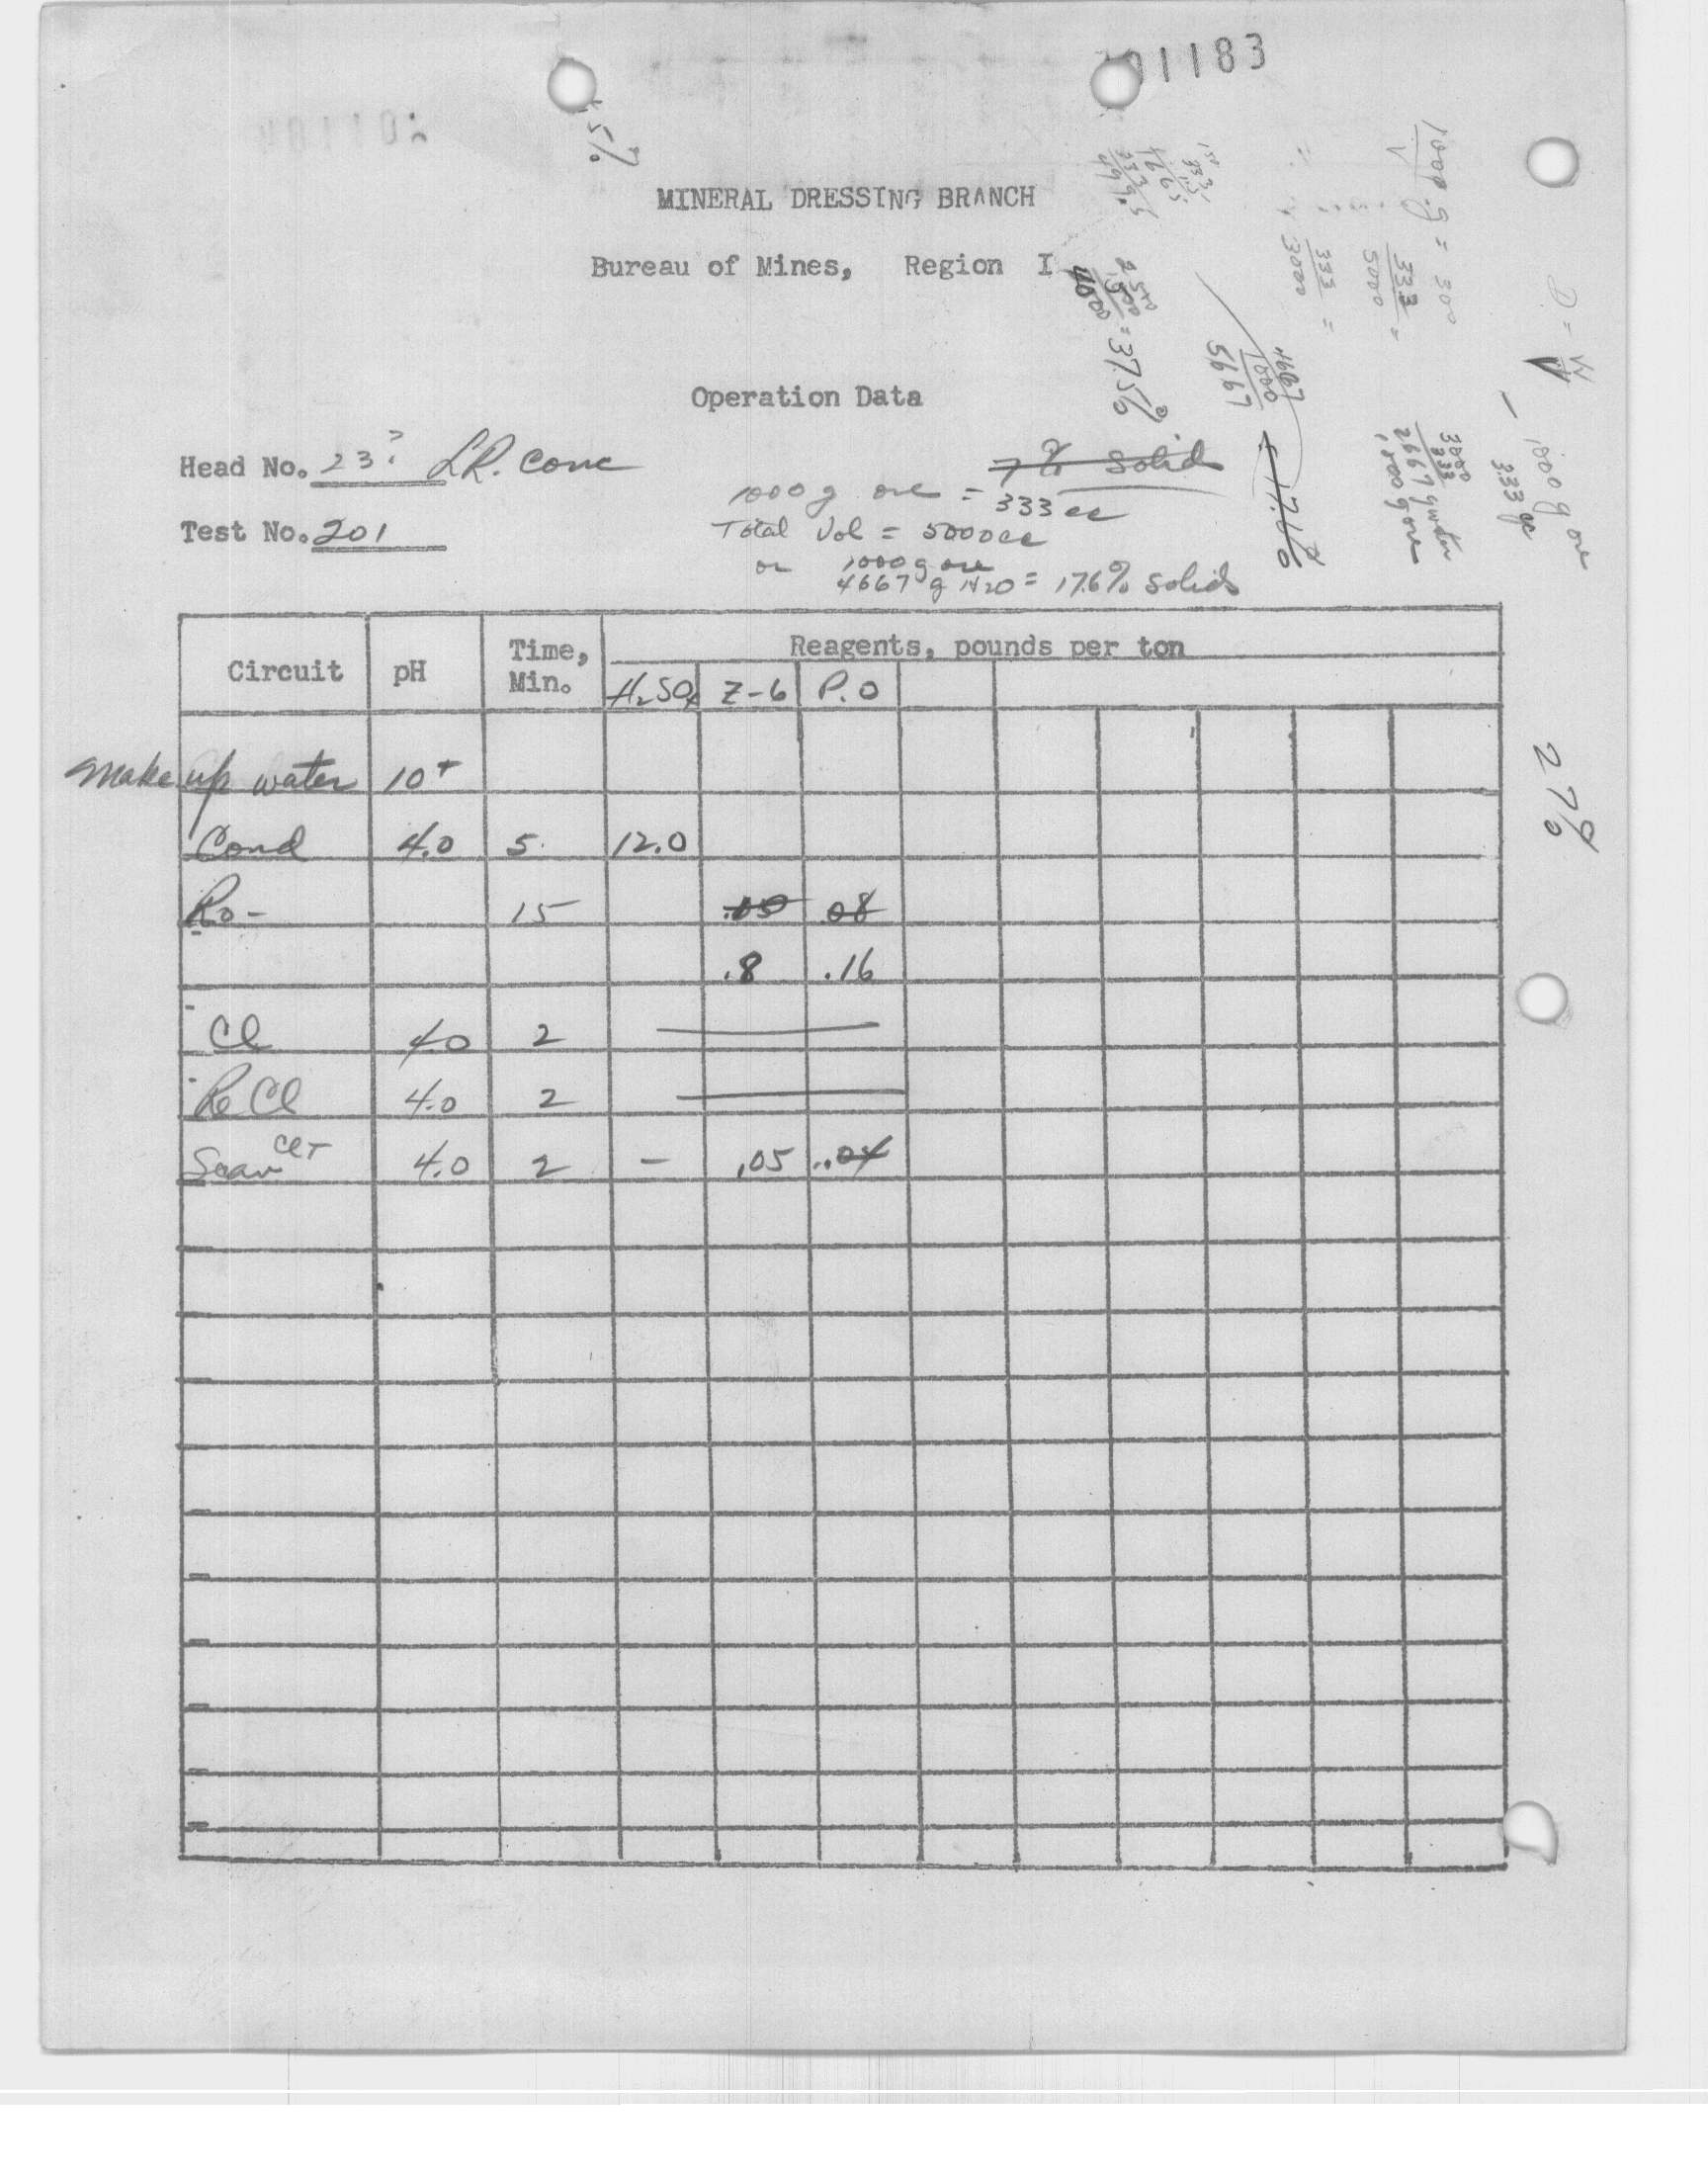 01183
5%
MINERAL DRESSING BRANCH
Bureau of Mines, Region I
1000 g = 300
333 =
5000
333 =
3000
= 37.5%
4667
1000
5667
17.6%
3000
333
2667 g water
1000 g ore
1000 g ore
333 cc
Operation Data
Head No. 23? LR. Conc
7% Solid
1000 g ore = 333 cc
Test No. 201
Total Vol = 5000 cc
or 1000 g ore
4667 g H2O = 17.6% solids
Circuit pH Time, Min. Reagents, pounds per ton
H2SO4 Z-6 P.O
Make up water 10+
27%
Cond 4.0 5. 12.0
Ro- 15 .05 .08
.8 .16
Cl 4.0 2 —
Re Cl 4.0 2 —
Scav ClT 4.0 2 - .05 .04